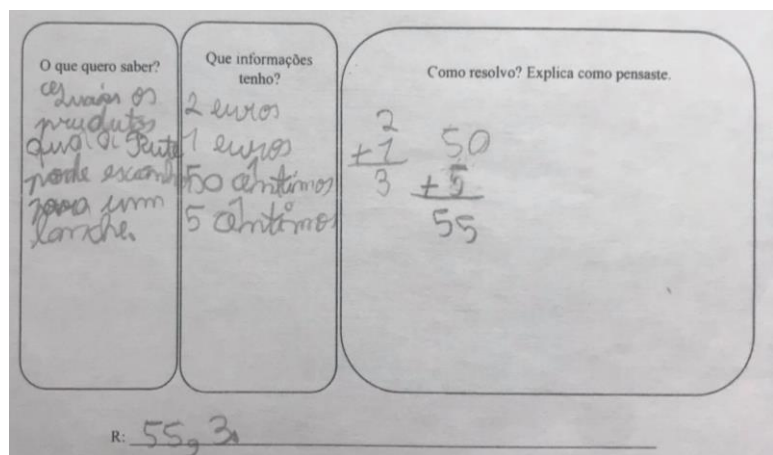 O que quero saber?
Quais os
produtos
que a Rute
pode
para um
lanche.
Que informações
tenho?
2 euros
1 euros
50 cêntimos
5 cêntimos
Como resolvo? Explica como pensaste.
2
+ 1
3
50
+ 5
55
R: 55, 3